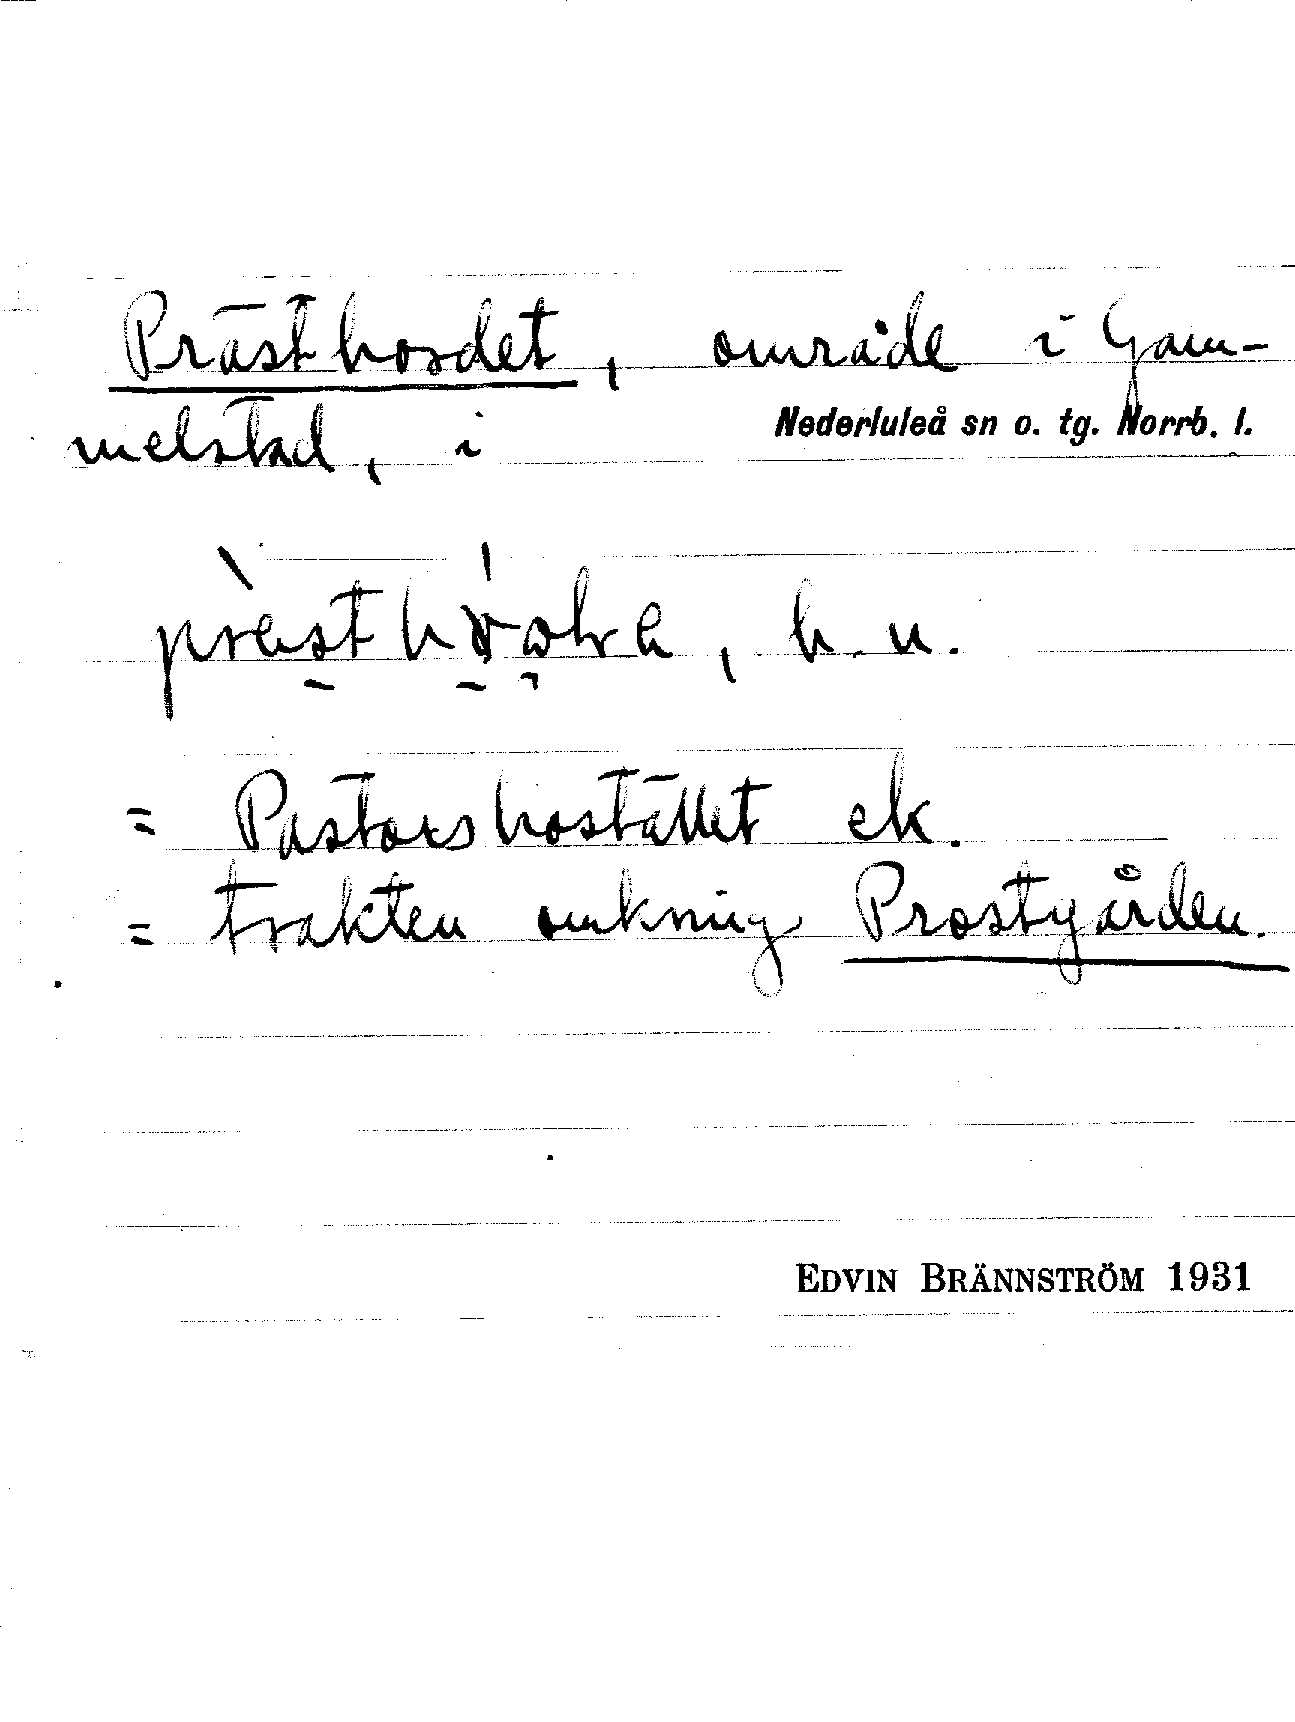 Prästbordet, område i Gam-
melstad, i Nederluleå sn o. tg. Norrb. l.
h. u.
= Pastorsbostället ek.
= trakten omkring Prostgården.
EDVIN BRÄNNSTRÖM 1931